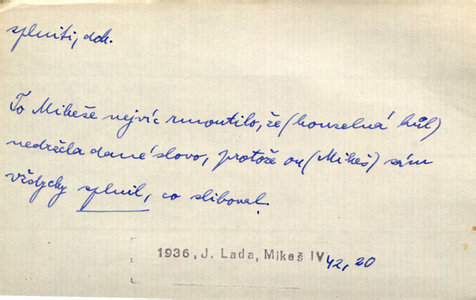 splniti, dok.
To Mikeše nejvíc rmoutilo, že (kouzelná hůl)
nedržela dané slovo, protože on (Mikeš) sám
vždycky splnil, co sliboval.
1936, J. Lada, Mikeš IV 42, 20